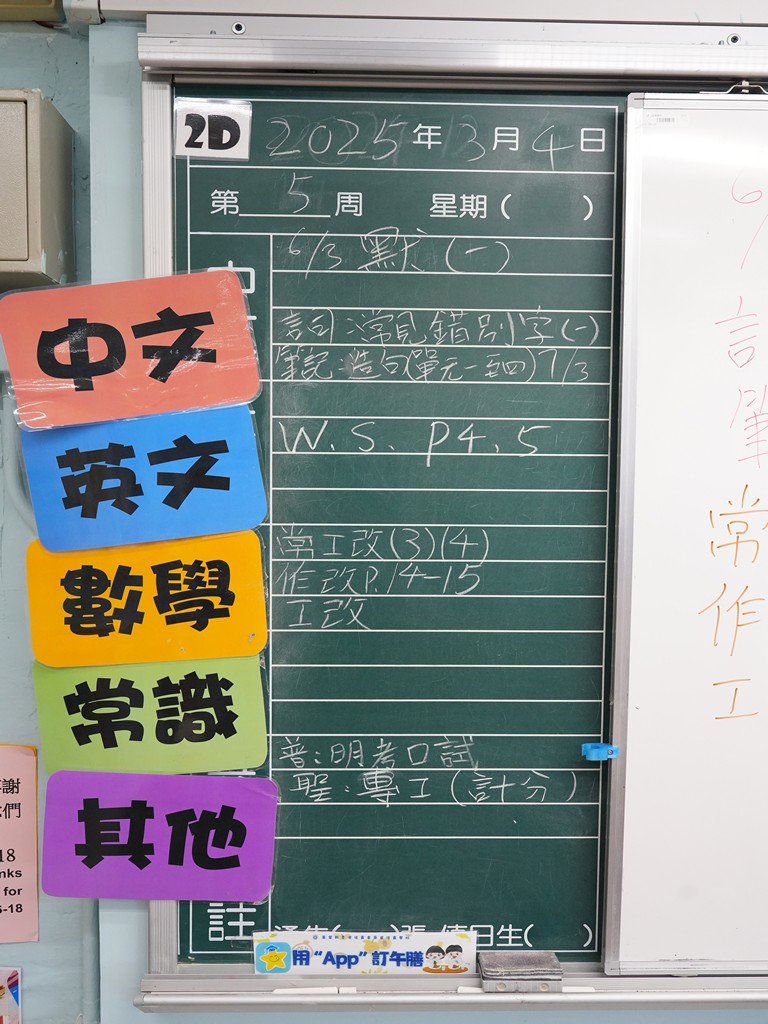 2D 2025年3月4日
第5周 星期( )
6/3 默(一)
詞句:常見錯別字(一)
筆記:造句(單元一至四) 7/3
W.S. P4.5
常工改(3)(4)
作改P.14-15
工改
普:明考口試
聖:專工(計分)
中文
英文
數學
常識
其他
註
日生( )
用“App”訂午膳
謝
們
18
for
-18
常
作
工